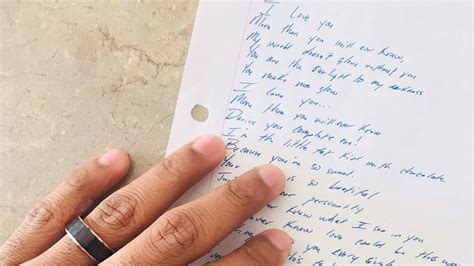 I love you
More than you will ever know,
My world doesn't glow without you
You are the sunlight to my darkness
You make me glow
I love you...
More than you will ever know
Do you complete me!
I'm the little fat kid with chocolate
Because you're so sweet.
Your is so beautiful
personality
know what I see in you
ever knew love could be this
you every
to